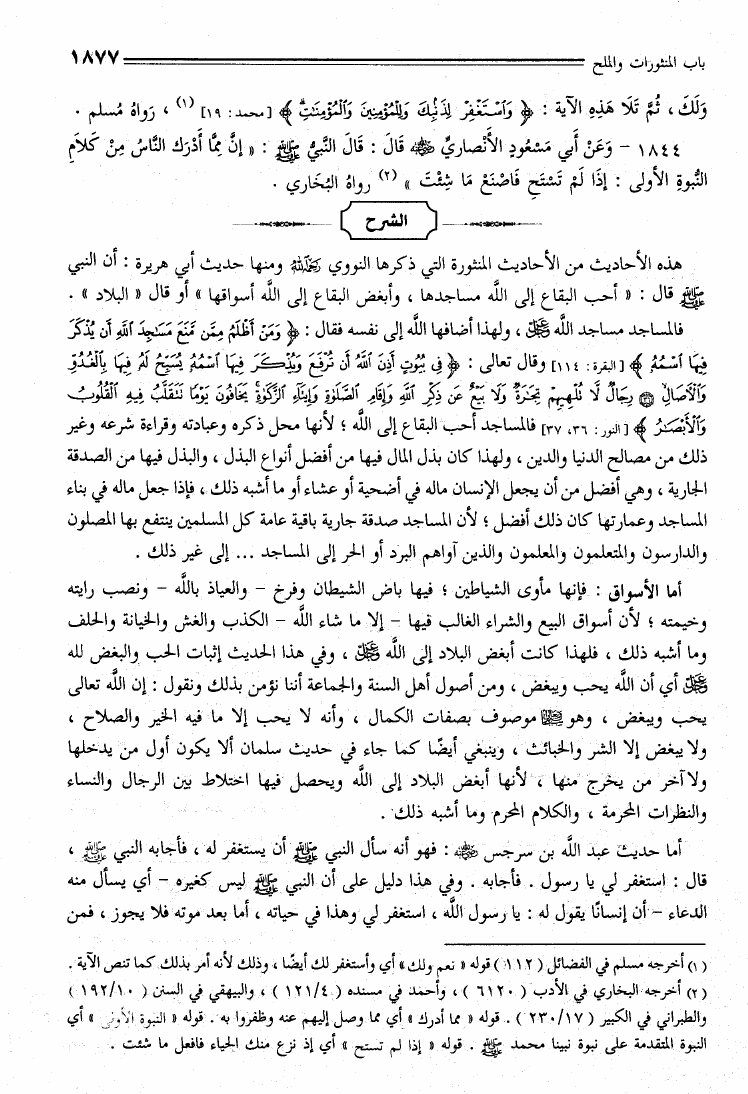 باب المنثورات والملح ١٨٧٧
وَلَكَ ، ثُمَّ تَلَا هَذِهِ الآية : ﴿ وَاسْتَغْفِرْ لِذَنْبِكَ وَلِلْمُؤْمِنِينَ وَالْمُؤْمِنَاتِ ﴾ [محمد: ١٩] (١) ، رَوَاهُ مُسلم .
١٨٤٤ - وَعَنْ أَبي مَسْعُودٍ الأَنْصاريِّ ﷺ قَالَ : قَالَ النَّبيُّ ﷺ : « إِنَّ مِمَّا أَدْرَكَ النَّاسُ مِنْ كَلَامِ
النُّبوةِ الأُولى : إِذَا لَمْ تَسْتَحِ فَاصْنَعْ مَا شِئْتَ » (٢) رواهُ البُخاري .
الشرح
هذه الأحاديث من الأحاديث المنثورة التي ذكرها النووي رحمه الله ومنها حديث أبي هريرة : أن النبي
ﷺ قال : « أحب البقاع إلى الله مساجدها ، وأبغض البقاع إلى الله أسواقها » أو قال « البلاد » .
فالمساجد مساجد الله عز وجل ، ولهذا أضافها الله إلى نفسه فقال : ﴿ وَمَنْ أَظْلَمُ مِمَّن مَّنَعَ مَسَاجِدَ اللَّهِ أَن يُذْكَرَ
فِيهَا اسْمُهُ ﴾ [البقرة : ١١٤] وقال تعالى : ﴿ فِي بُيُوتٍ أَذِنَ اللَّهُ أَن تُرْفَعَ وَيُذْكَرَ فِيهَا اسْمُهُ يُسَبِّحُ لَهُ فِيهَا بِالْغُدُوِّ
وَالْآصَالِ رِجَالٌ لَّا تُلْهِيهِمْ تِجَارَةٌ وَلَا بَيْعٌ عَن ذِكْرِ اللَّهِ وَإِقَامِ الصَّلَاةِ وَإِيتَاءِ الزَّكَاةِ يَخَافُونَ يَوْمًا تَتَقَلَّبُ فِيهِ الْقُلُوبُ
وَالْأَبْصَارُ ﴾ [النور : ٣٦، ٣٧] فالمساجد أحب البقاع إلى الله ؛ لأنها محل ذكره وعبادته وقراءة شرعه وغير
ذلك من مصالح الدنيا والدين ، ولهذا كان بذل المال فيها من أفضل أنواع البذل ، والبذل فيها من الصدقة
الجارية ، وهي أفضل من أن يجعل الإنسان ماله في أضحية أو عشاء أو ما أشبه ذلك ، فإذا جعل ماله في بناء
المساجد وعمارتها كان ذلك أفضل ؛ لأن المساجد صدقة جارية باقية عامة كل المسلمين ينتفع بها المصلون
والدارسون والمتعلمون والمعلمون والذين آواهم البرد أو الحر إلى المساجد ... إلى غير ذلك .
أما الأسواق : فإنها مأوى الشياطين ؛ فيها باض الشيطان وفرخ - والعياذ بالله - ونصب رايته
وخيمته ؛ لأن أسواق البيع والشراء الغالب فيها - إلا ما شاء الله - الكذب والغش والخيانة والحلف
وما أشبه ذلك ، فلهذا كانت أبغض البلاد إلى الله عز وجل ، وفي هذا الحديث إثبات الحب والبغض لله
عز وجل أي أن الله يحب ويبغض ، ومن أصول أهل السنة والجماعة أننا نؤمن بذلك ونقول : إن الله تعالى
يحب ويبغض ، وهو موصوف بصفات الكمال ، وأنه لا يحب إلا ما فيه الخير والصلاح ،
ولا يبغض إلا الشر والخبائث ، وينبغي أيضًا كما جاء في حديث سلمان ألا يكون أول من يدخلها
ولا آخر من يخرج منها ، لأنها أبغض البلاد إلى الله ويحصل فيها اختلاط بين الرجال والنساء
والنظرات المحرمة ، والكلام المحرم وما أشبه ذلك .
أما حديث عبد الله بن سرجس رضي الله عنه : فهو أنه سأل النبي ﷺ أن يستغفر له ، فأجابه النبي ﷺ ،
قال : استغفر لي يا رسول . فأجابه . وفي هذا دليل على أن النبي ﷺ ليس كغيره - أي يسأل منه
الدعاء - أن إنسانًا يقول له : يا رسول الله ، استغفر لي وهذا في حياته ، أما بعد موته فلا يجوز ، فمن
(١) أخرجه مسلم في الفضائل (١١٢) قوله « نعم ولك » أي وأستغفر لك أيضًا ، وذلك لأنه أمر بذلك كما تنص الآية .
(٢) أخرجه البخاري في الأدب (٦١٢٠) ، وأحمد في مسنده (١٢١/٤) ، والبيهقي في السنن (١٩٢/١٠)
والطبراني في الكبير (٢٣٠/١٧) . قوله « مما أدرك » أي مما وصل إليهم عنه وظفروا به . قوله « النبوة الأولى » أي
النبوة المتقدمة على نبوة نبينا محمد ﷺ . قوله « إذا لم تستح » أي إذ نزع منك الحياء فافعل ما شئت .